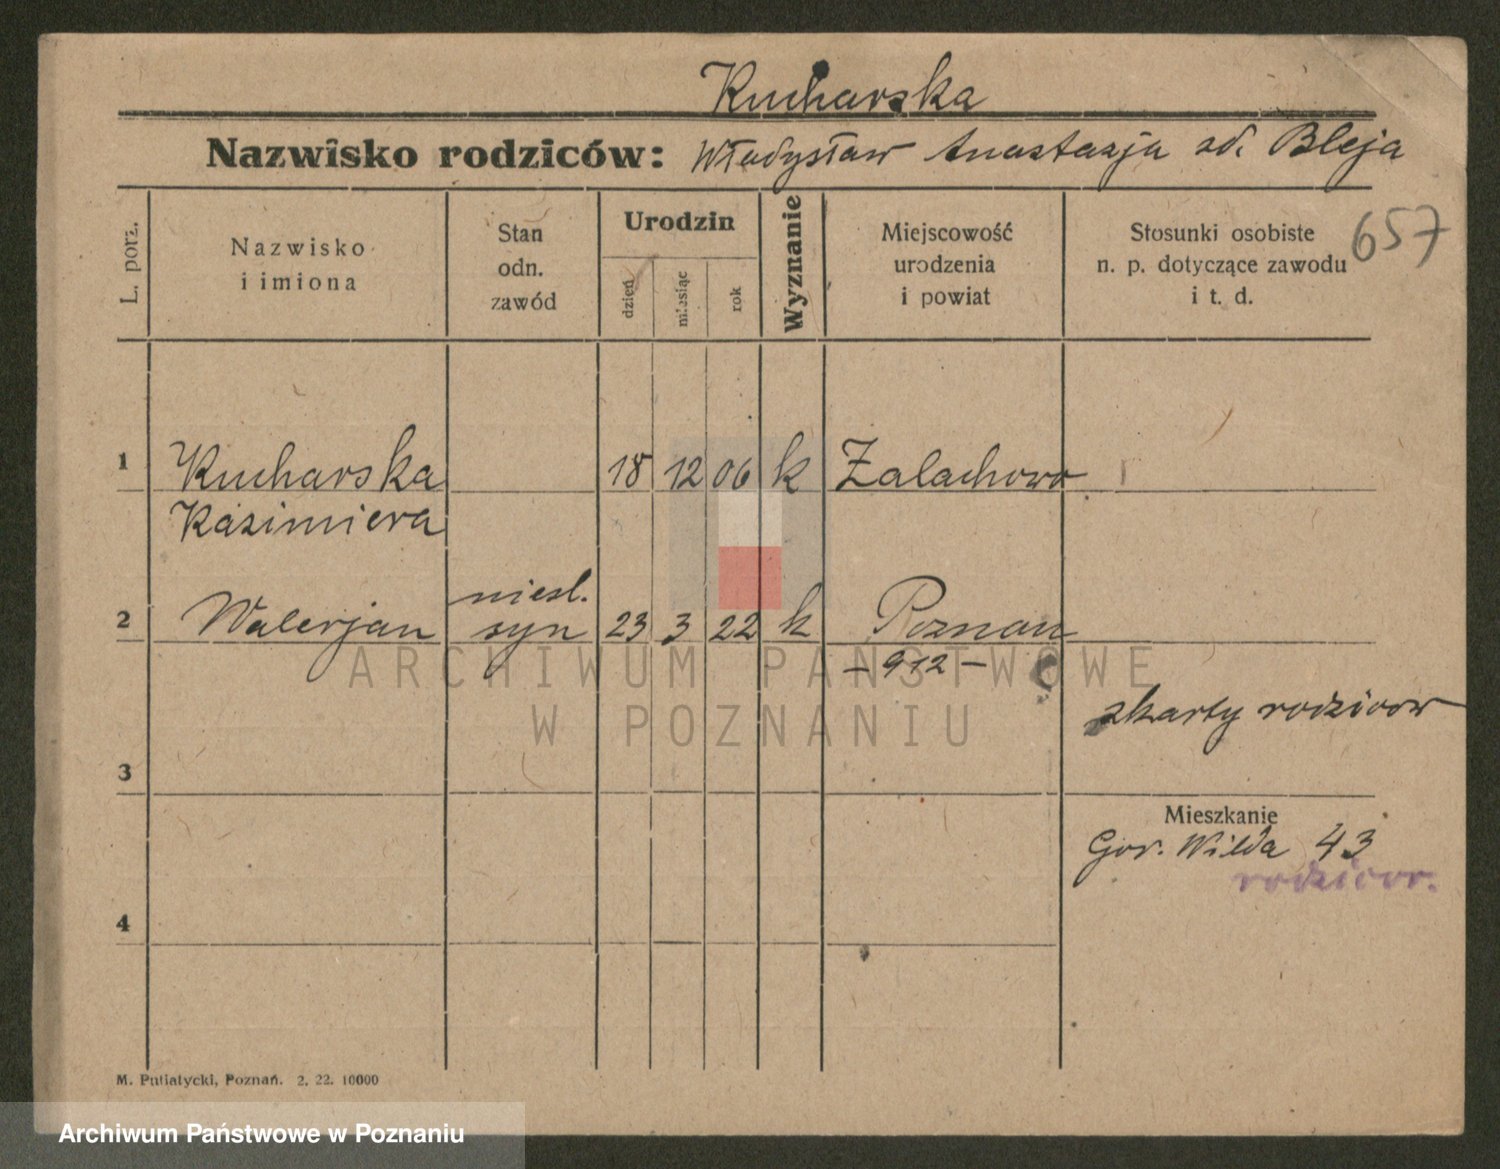 Kucharska
Nazwisko rodziców: Władysław Anastazja zd. Bleja
657
L. porz.
Nazwisko
i imiona
Stan
odn.
zawód
Urodzin
dzień
miesiąc
rok
Wyznanie
Miejscowość
urodzenia
i powiat
Stosunki osobiste
n. p. dotyczące zawodu
i t. d.
1 Kucharska 18 12 06 k Zalachowo
Kazimiera
niesl.
2 Walerjan syn 23 3 22 k Poznan
- 912 -
zkarty rodziców
3
Mieszkanie
Gor. Wilda 43
rodzicow.
4
M. Putiatycki, Poznań. 2. 22. 10000
ARCHIWUM PAŃSTWOWE
W POZNANIU
Archiwum Państwowe w Poznaniu